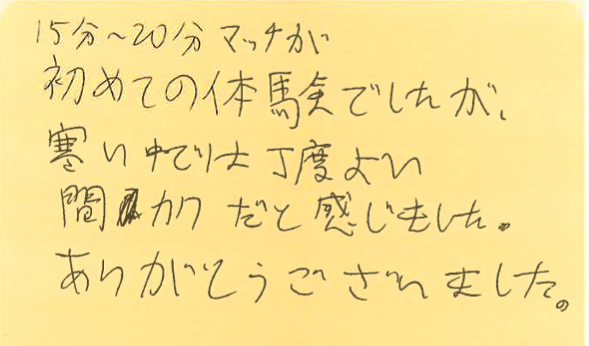 15分~20分 マッチが
初めての体験でしたが、
寒い中では丁度よい
間カクだと感じました。
ありがとうございました。